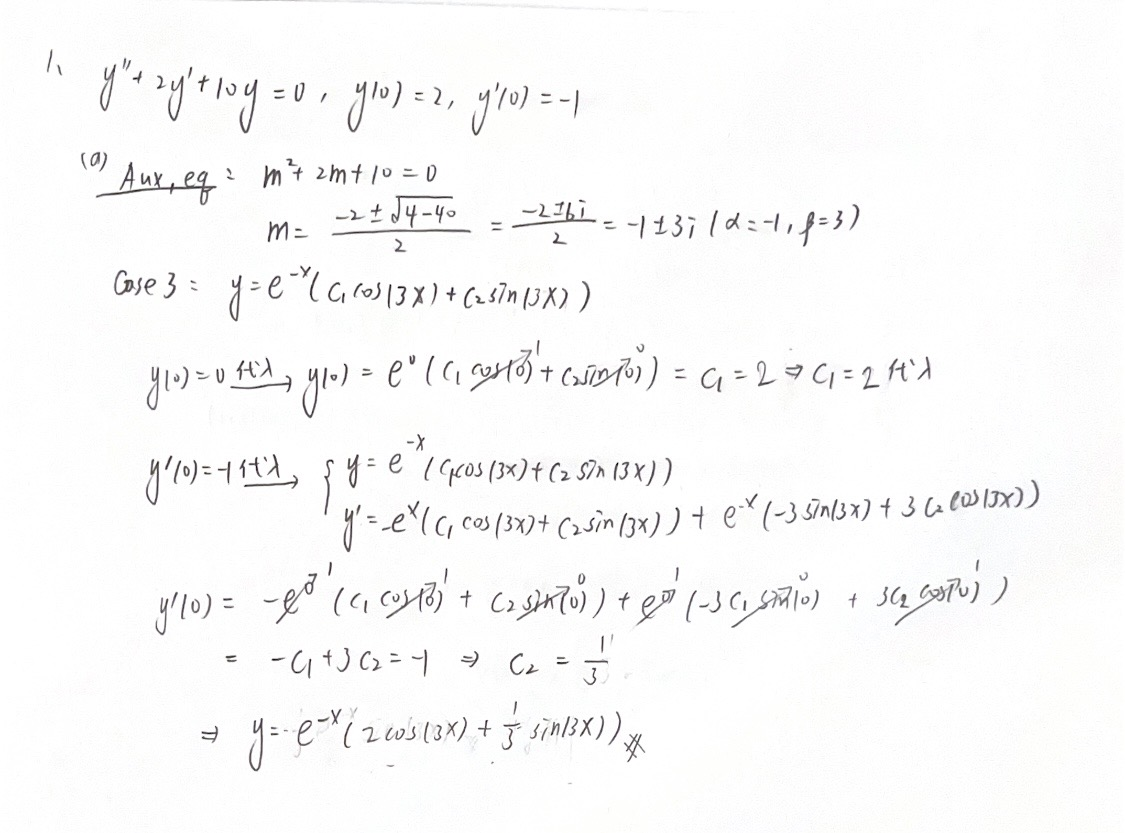 1. y'' + 2y' + 10y = 0, y(0) = 2, y'(0) = -1
(a) Aux, eq: m² + 2m + 10 = 0
m = (-2 ± √(4-40))/2 = (-2 ± 6i)/2 = -1 ± 3i (α = -1, β = 3)
Case 3: y = e^{-x}(C₁ cos(3x) + C₂ sin(3x))
y(0) = 0 代入→ y(0) = e⁰(C₁ cos(0)¹ + C₂ sin(0)⁰) = C₁ = 2 ⇒ C₁ = 2 代入
y'(0) = -1 代入→ { y = e^{-x}(C₁cos(3x) + C₂ sin(3x))
y' = -e^{x}(C₁ cos(3x) + C₂ sin(3x)) + e^{-x}(-3 sin(3x) + 3C₂ cos(3x))
y'(0) = -e⁰ ¹ (C₁ cos(0)¹ + C₂ sin(0)⁰) + e⁰ ¹ (-3C₁ sin(0)⁰ + 3C₂ cos(0)¹)
= -C₁ + 3C₂ = -1 ⇒ C₂ = 1/3
⇒ y = e^{-x}(2cos(3x) + 1/3 sin(3x))